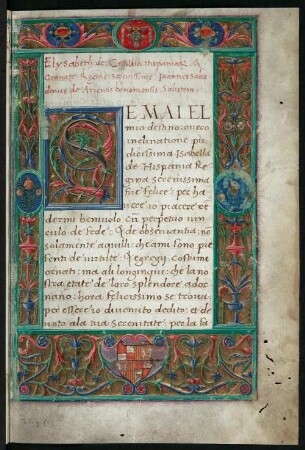 Elysabeth de Castilla Hispaniar. &
Granate Regine serenissime Joannes Saba
dinus de Arienis bononiensis Salutem
SE MAI EL
mio destino o vero
inclinatione pru
dentissima Isabella
de Hispania Re
gina serenissima
fue felice: per ha
vere io piacere ve
dermi benivolo cũ perpetuo vin
culo de fede: & de observantia: nõ
solamente aquilli: che ami sono pre
senti de virtute: & egregii costume
ornati: ma ali longinqui: che la no
stra etate de loro splendore ador
nano: hora felicissimo se trova
per essere io divenuto dedito: et de
voto ala tua serenitate: per la fa